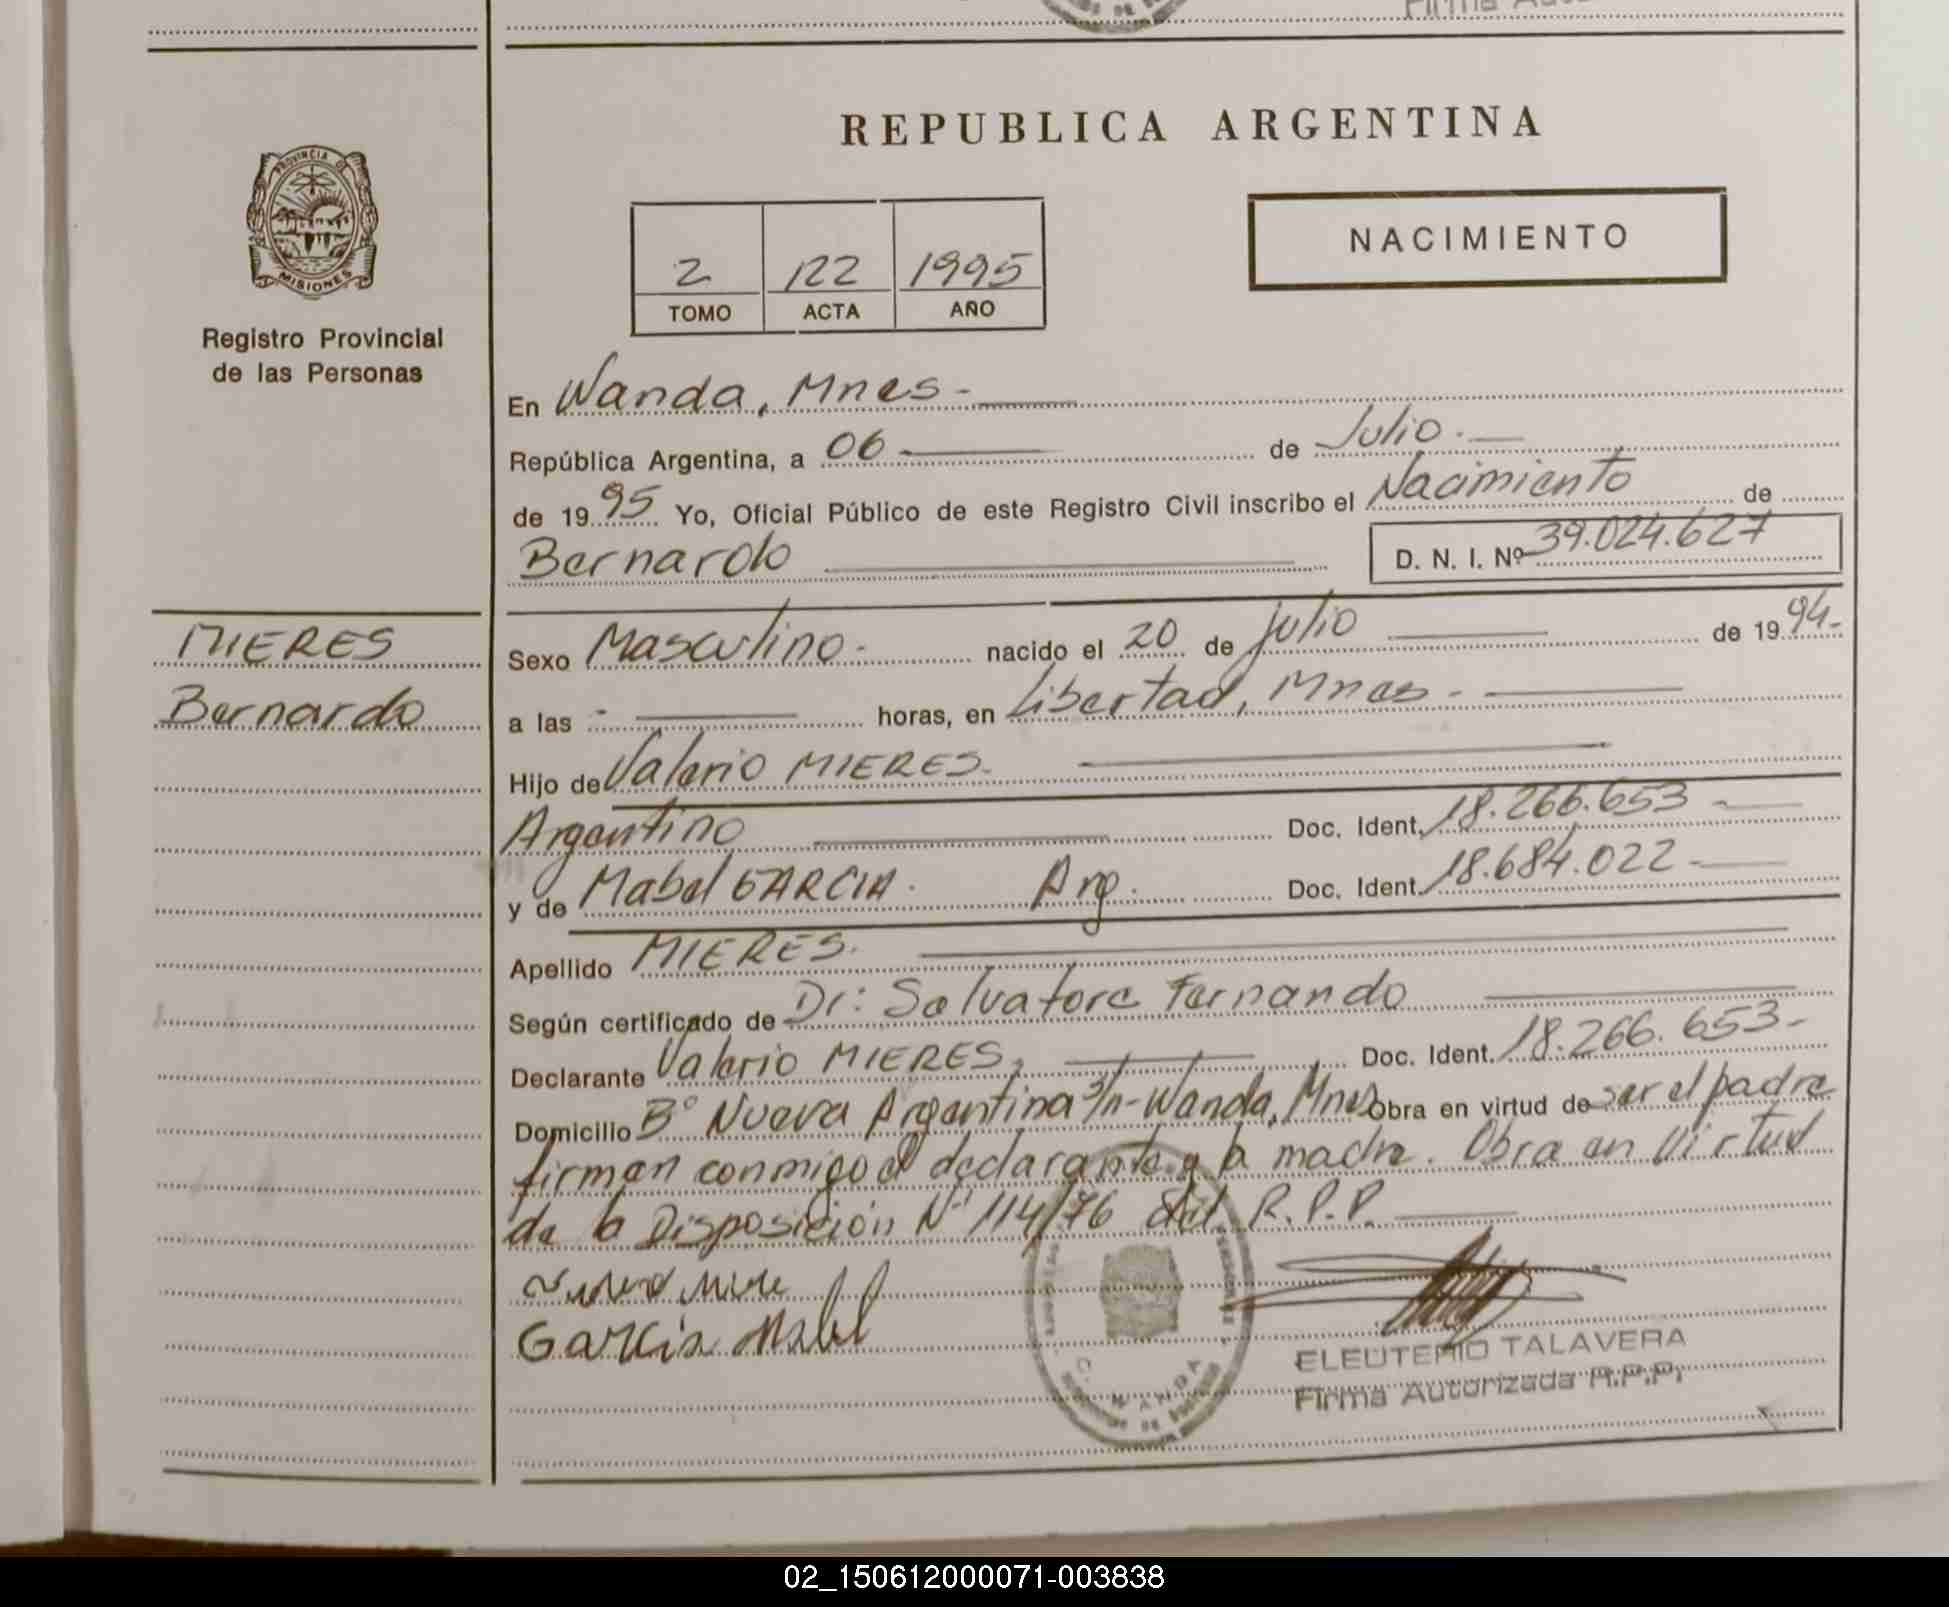 Firma Auto
REPUBLICA ARGENTINA
PROVINCIA DE
MISIONES
Registro Provincial
de las Personas
2 122 1995
TOMO ACTA AÑO
NACIMIENTO
En Wanda, Mnes -
República Argentina, a 06 de Julio.
de 1995 Yo, Oficial Público de este Registro Civil inscribo el Nacimiento de
Bernardo D. N. I. Nº 39.024.627
MIERES
Bernardo
Sexo Masculino. nacido el 20 de julio de 1994-
a las - horas, en Libertad, Mnes -
Hijo de Valerio MIERES.
Argentino Doc. Ident. 18.266.653 -
y de Mabel GARCIA. Arg. Doc. Ident. 18.684.022 -
Apellido MIERES.
Según certificado de Dr: Salvatore Fernando
Declarante Valerio MIERES, Doc. Ident. 18.266.653-
Domicilio Bº Nueva Argentina S/n-Wanda, Mnes Obra en virtud de ser el padre
firman conmigo el declarante y la madre. Obra en Virtud
de la Disposición Nº 114/76 del R.P.P.
Garcia Mabel
WANDA
ELEUTERIO TALAVERA
Firma Autorizada R.P.P.
02_150612000071-003838